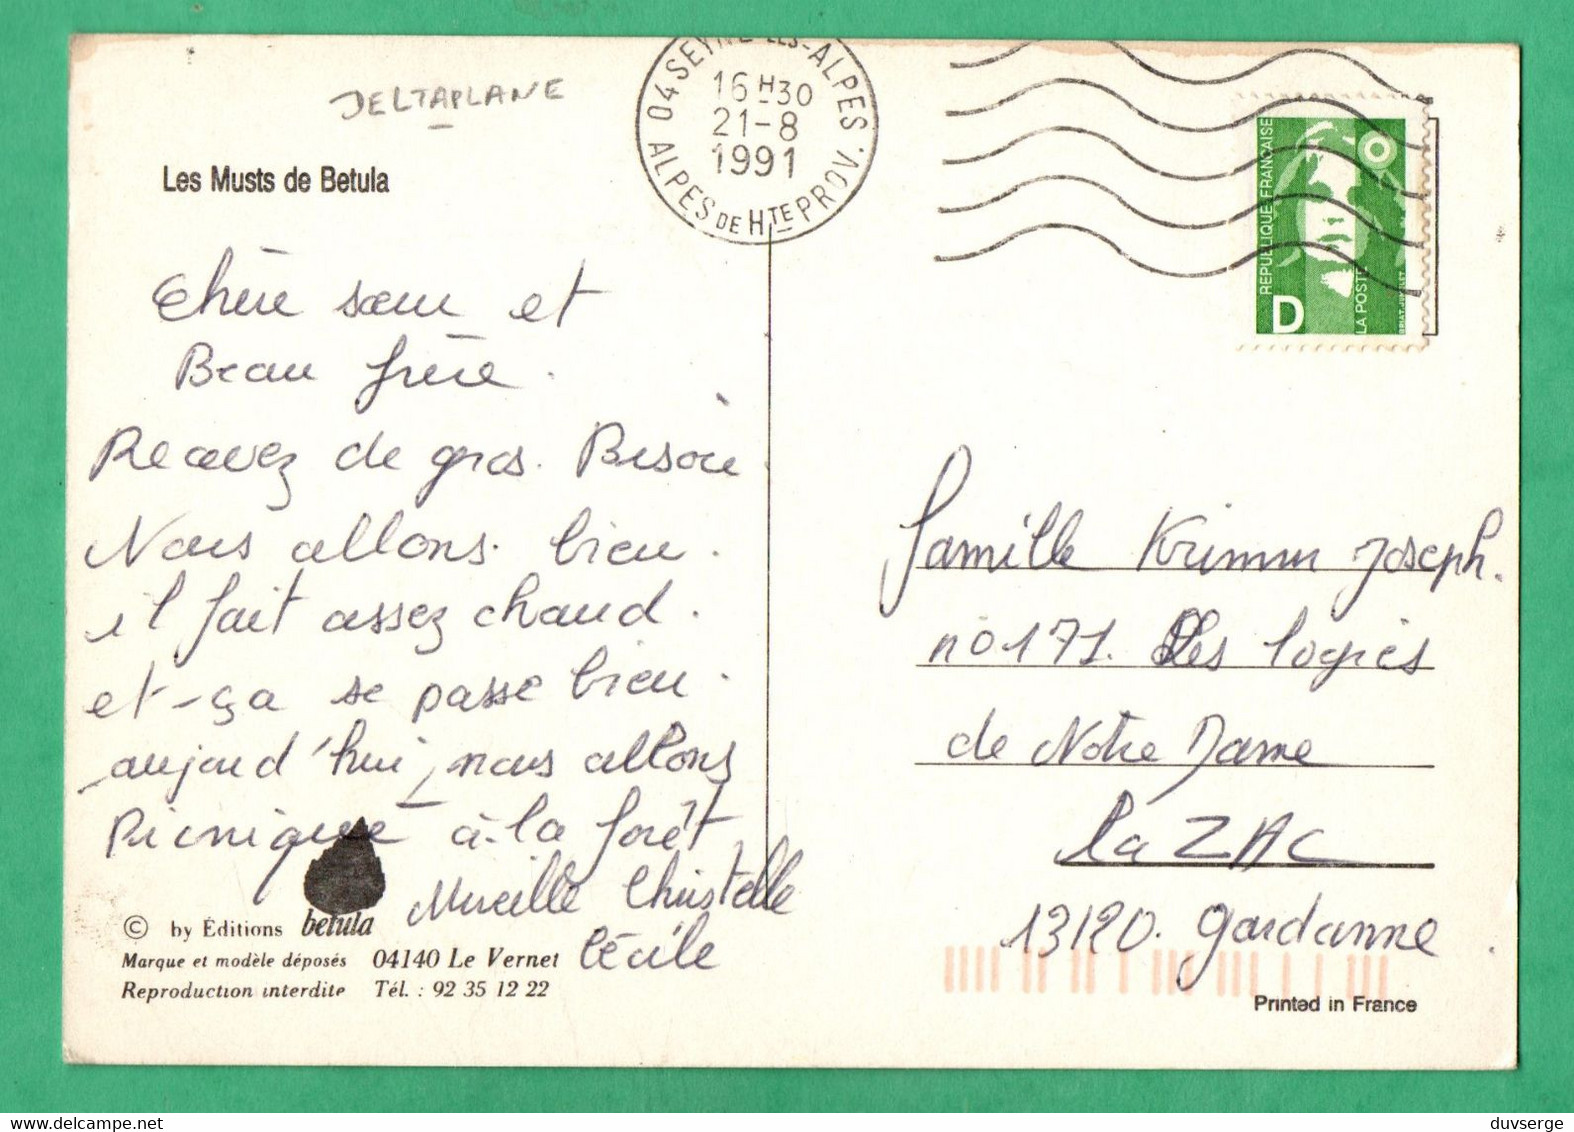 DELTAPLANE
Les Musts de Betula
Chère sœur et
Beau frère.
Recevez de gros. Bisou
Nous allons. bien.
il fait assez chaud.
et-ça se passe bien.
aujourd'hui, nous allons
Picnique à-la forêt
Mireille Christelle
Cécile
© by Éditions betula
Marque et modèle déposés 04140 Le Vernet
Reproduction interdite Tél. : 92 35 12 22
04 SEYNE-LES-ALPES
16H30
21-8
1991
ALPES DE HTE PROV.
REPUBLIQUE FRANÇAISE
D
LA POSTE
BRIAT.JUMELET
famille Krimm Joseph.
no 171. Les logies
de Notre Dame
la ZAC
13120. Gardanne
Printed in France
duvserge